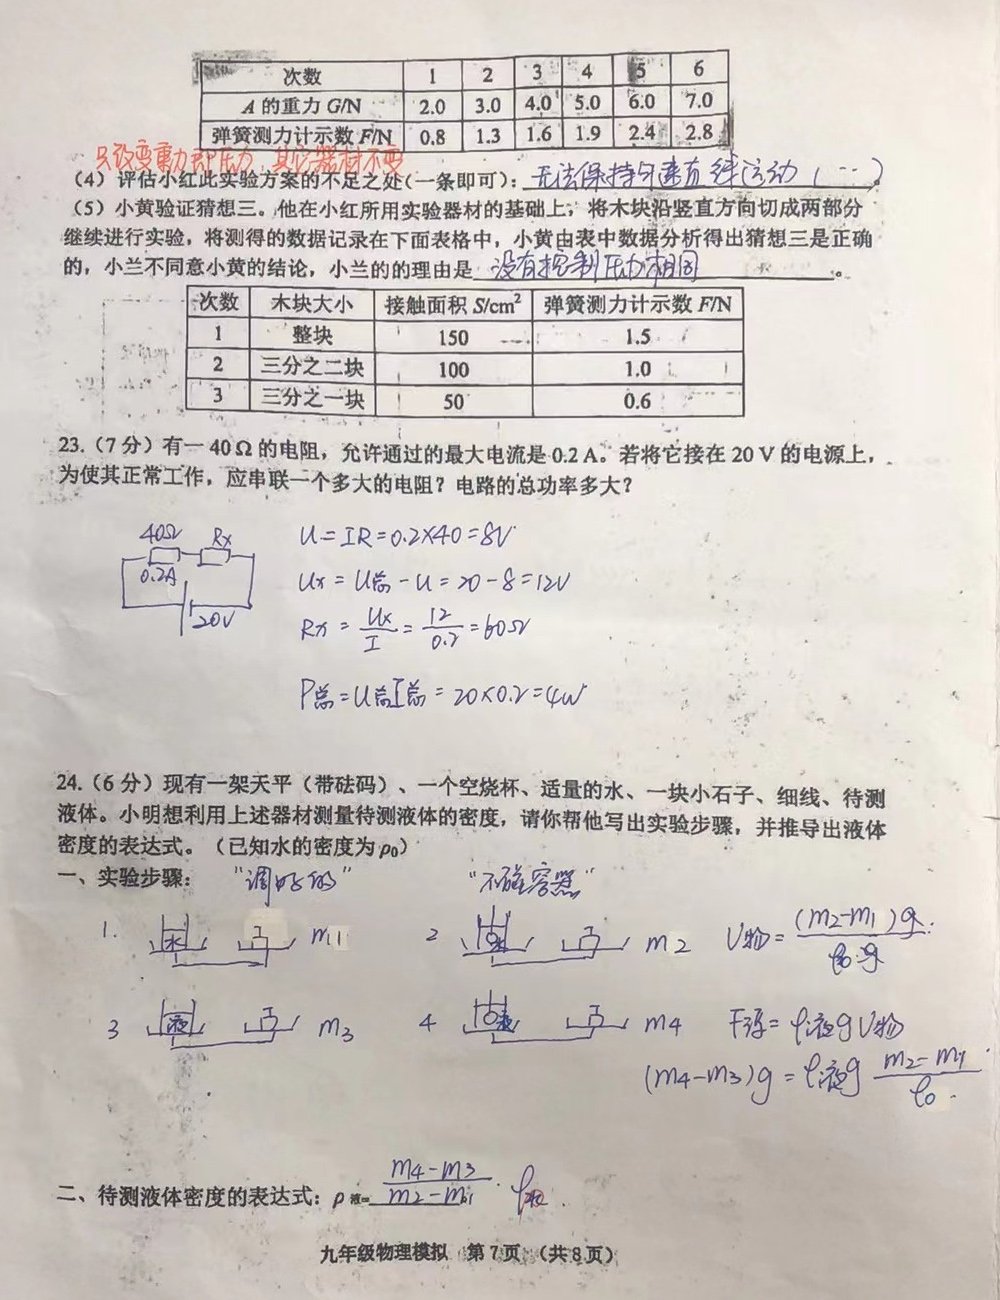 次数 1 2 3 4 5 6
A 的重力 G/N 2.0 3.0 4.0 5.0 6.0 7.0
弹簧测力计示数 F/N 0.8 1.3 1.6 1.9 2.4 2.8
只改变重力即压力,其它器材不变
(4) 评估小红此实验方案的不足之处(一条即可): 无法保持匀速直线运动 (…)
(5) 小黄验证猜想三。他在小红所用实验器材的基础上,将木块沿竖直方向切成两部分
继续进行实验,将测得的数据记录在下面表格中,小黄由表中数据分析得出猜想三是正确
的,小兰不同意小黄的结论,小兰的的理由是 没有控制压力相同 。
次数 木块大小 接触面积 S/cm² 弹簧测力计示数 F/N
1 整块 150 1.5
2 三分之二块 100 1.0
3 三分之一块 50 0.6
23.(7 分)有一 40 Ω 的电阻,允许通过的最大电流是 0.2 A。若将它接在 20 V 的电源上,
为使其正常工作,应串联一个多大的电阻?电路的总功率多大?
40Ω Rx
0.2A
20V
U=IR=0.2×40=8V
Ux=U总-U=20-8=12V
Rx=Ux/I=12/0.2=60Ω
P总=U总I总=20×0.2=4W
24.(6 分)现有一架天平(带砝码)、一个空烧杯、适量的水、一块小石子、细线、待测
液体。小明想利用上述器材测量待测液体的密度,请你帮他写出实验步骤,并推导出液体
密度的表达式。(已知水的密度为ρ₀)
一、实验步骤: "调好的" "不碰容器"
1. 水 m1 2 水 m2 V物=(m2-m1)g/ρ0·g
3 液 m3 4 液 m4 F浮=ρ液gV物
(m4-m3)g=ρ液g (m2-m1)/ρ0
二、待测液体密度的表达式:ρ液= (m4-m3)/(m2-m1)·ρ
九年级物理模拟 第 7 页 (共 8 页)